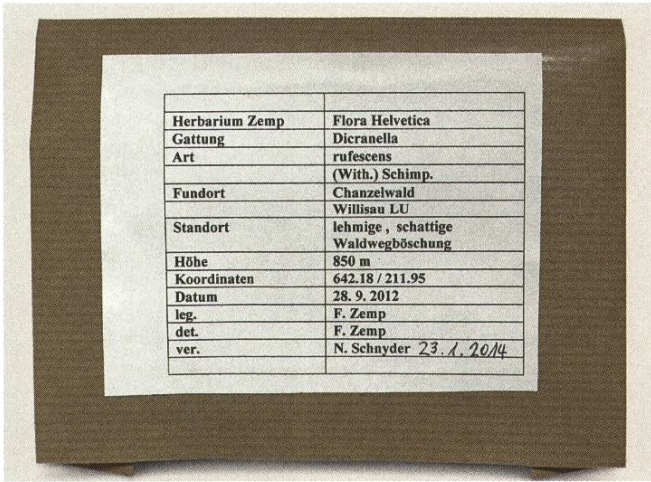 Herbarium Zemp Flora Helvetica
Gattung Dicranella
Art rufescens
(With.) Schimp.
Fundort Chanzelwald
Willisau LU
Standort lehmige , schattige
Waldwegböschung
Höhe 850 m
Koordinaten 642.18 / 211.95
Datum 28. 9. 2012
leg. F. Zemp
det. F. Zemp
ver. N. Schnyder 23.1.2014